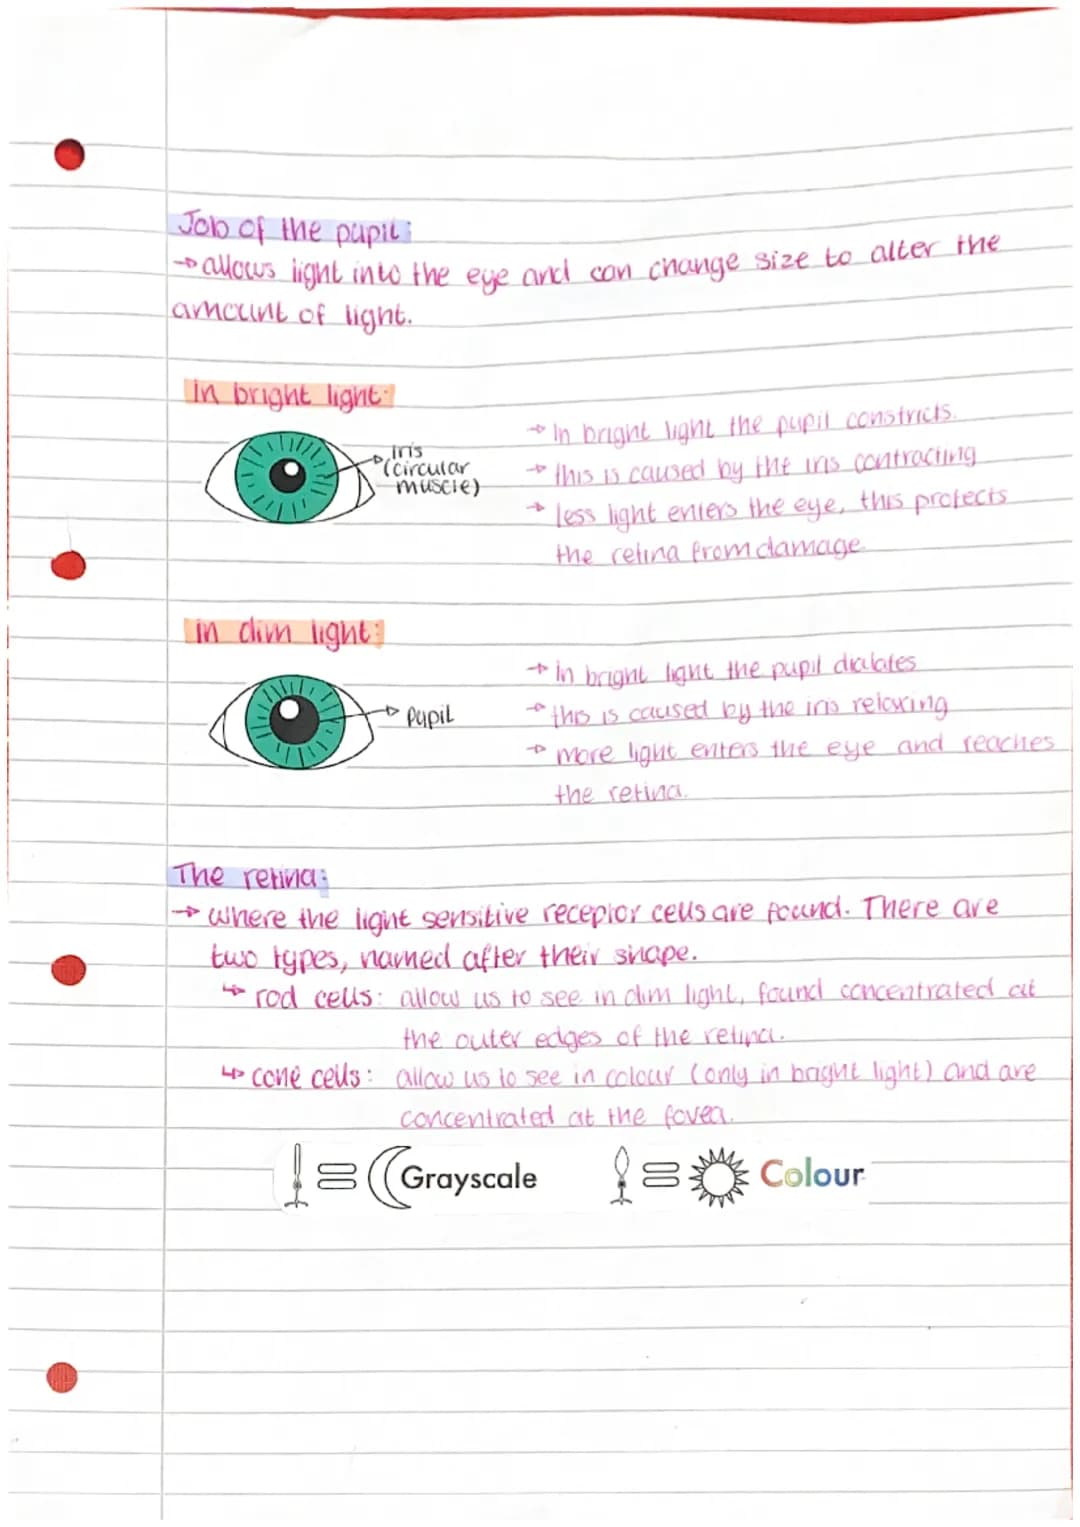 Job of the pupil:
→ allows light into the eye and can change size to alter the
amount of light.
In bright light:
Iris
(circular
muscle)
→ In bright light the pupil constricts.
→ this is caused by the iris contracting
→ less light enters the eye, this protects
the retina from damage.
in dim light:
Pupil
→ in bright light the pupil dialates
→ this is caused by the iris relaxing
→ more light enters the eye and reaches
the retina.
The retina:
→ where the light sensitive receptor cells are found. There are
two types, named after their shape.
↳ rod cells: allow us to see in dim light, found concentrated at
the outer edges of the retina.
↳ cone cells: allow us to see in colour (only in bright light) and are
concentrated at the fovea.
= Grayscale = Colour